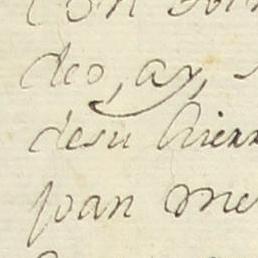 deo, ay,
desu hierr
joan me